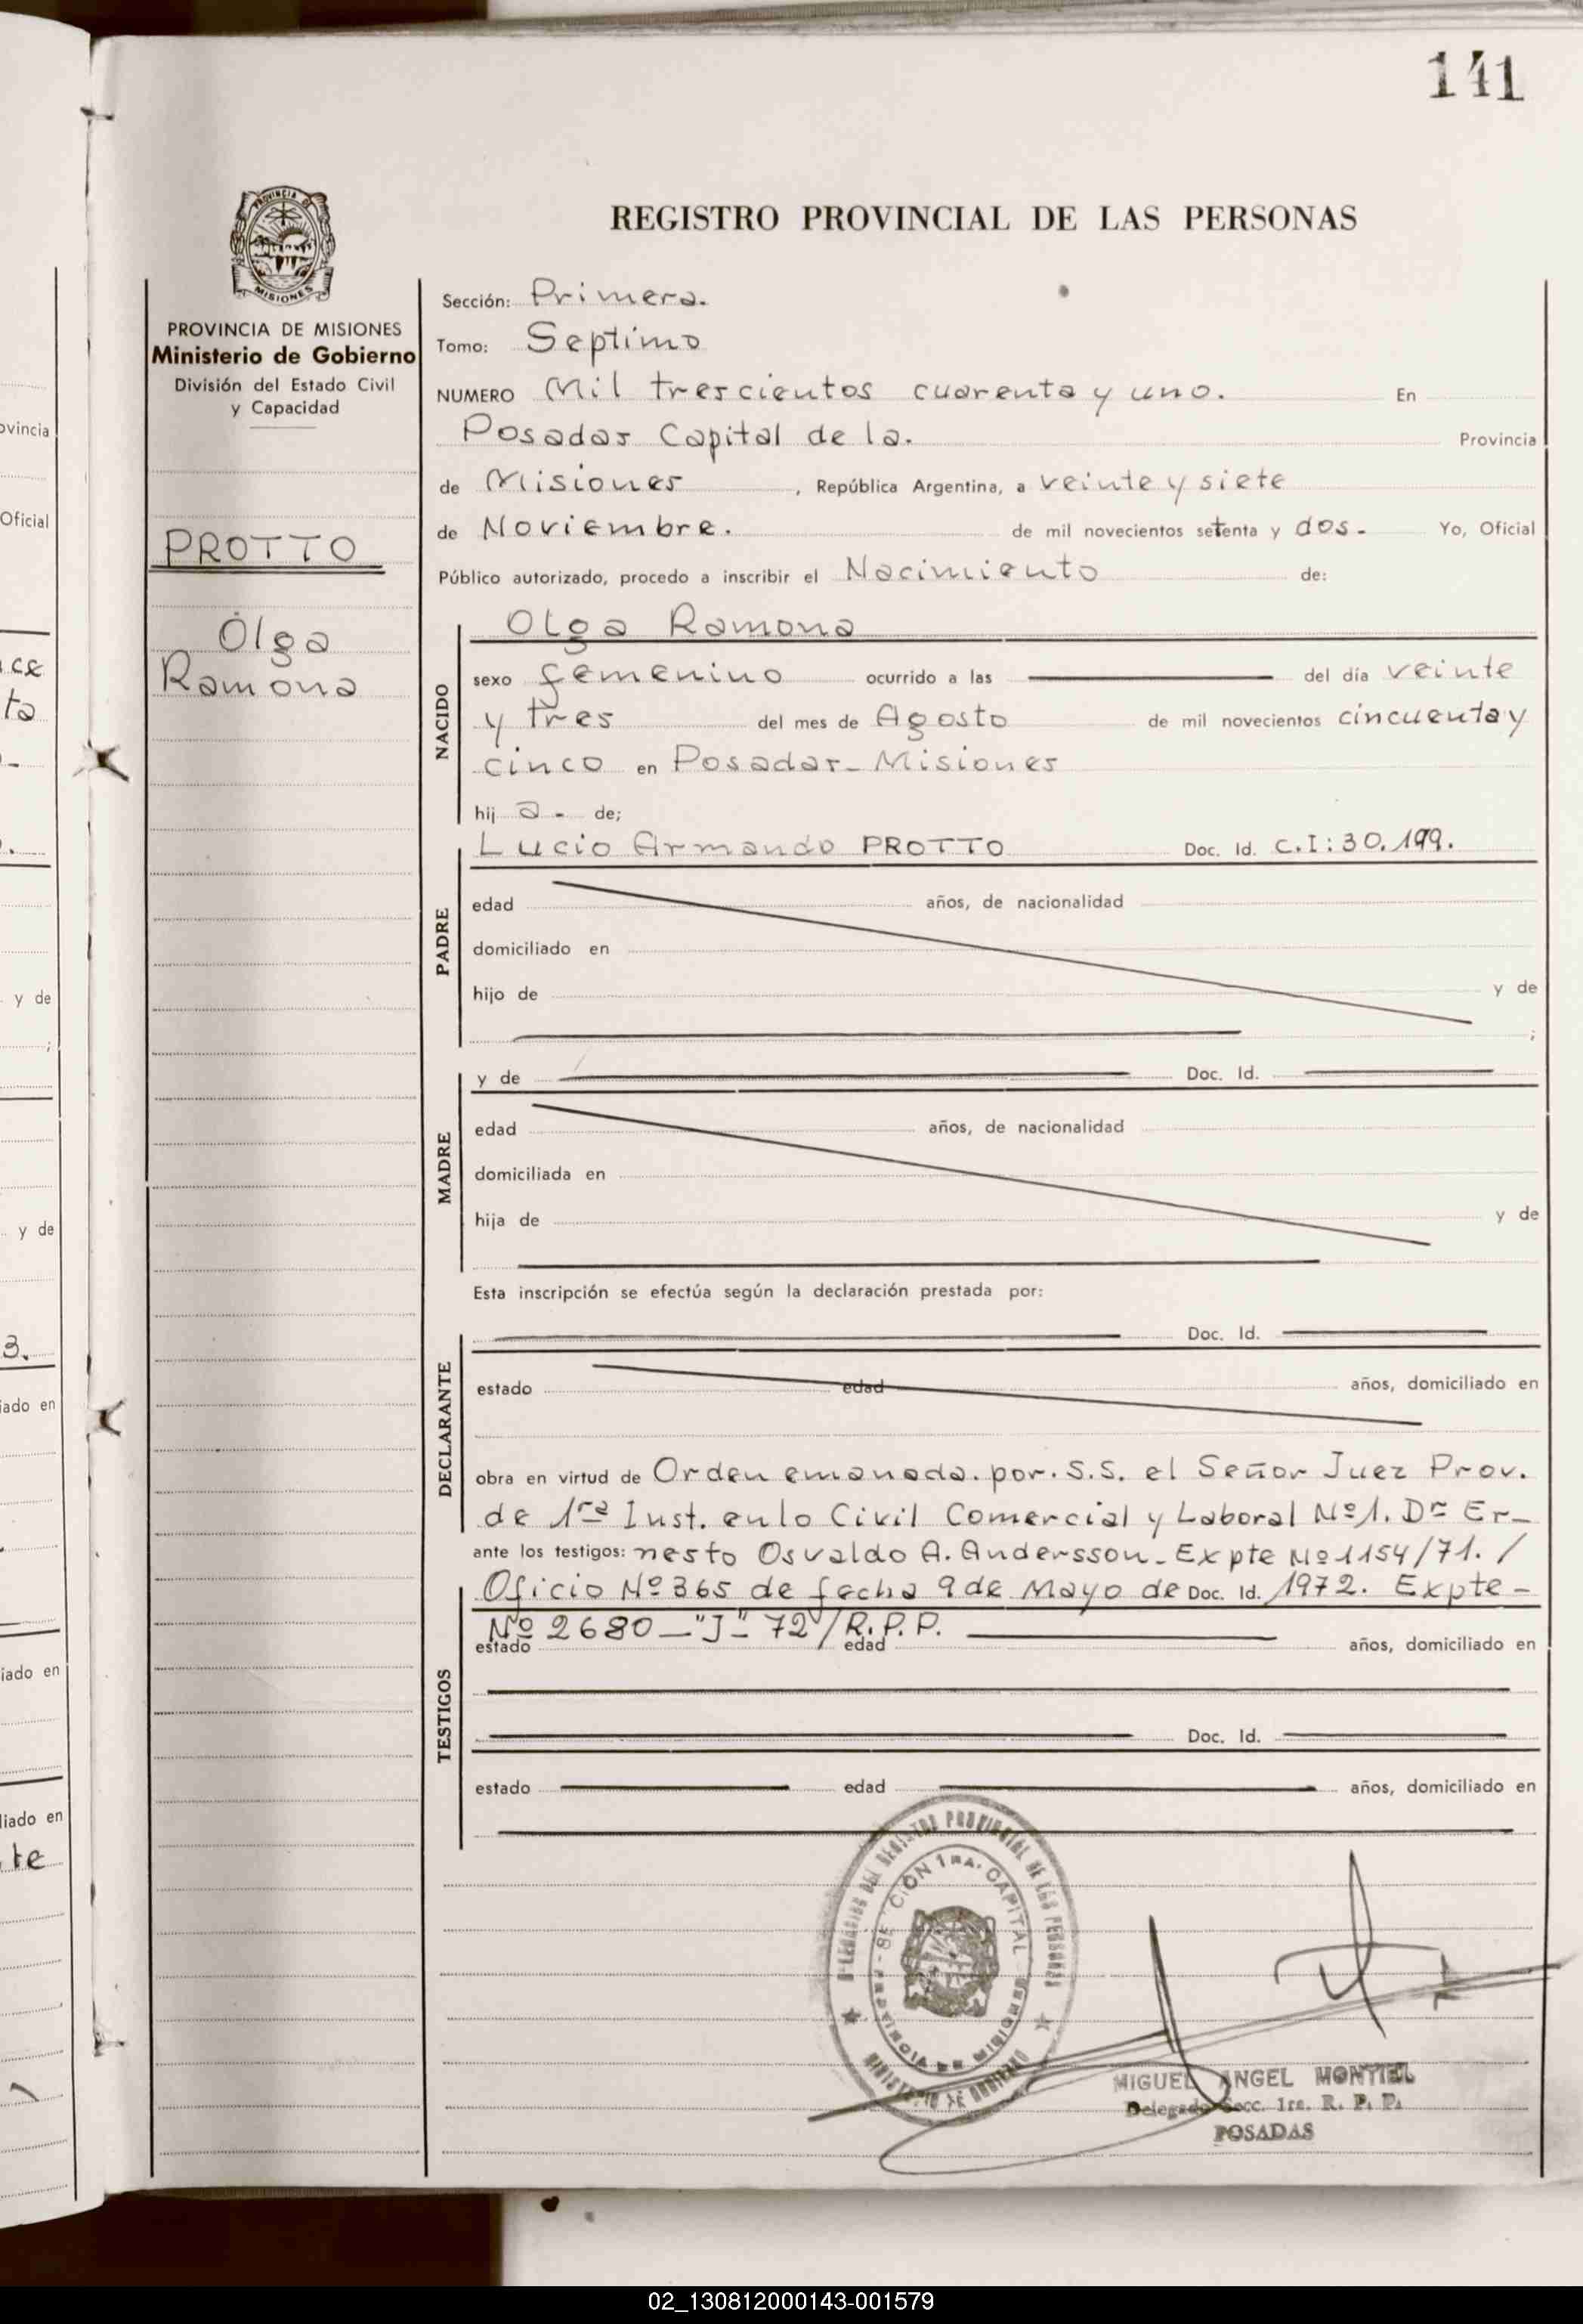 141
REGISTRO PROVINCIAL DE LAS PERSONAS
PROVINCIA DE
MISIONES
PROVINCIA DE MISIONES
Ministerio de Gobierno
División del Estado Civil
y Capacidad
PROTTO
Olga
Ramona
Sección: Primera.
Tomo: Septimo
NUMERO Mil trescientos cuarenta y uno. En
Posadas Capital de la. Provincia
de Misiones, República Argentina, a veinte y siete
de Noviembre. de mil novecientos setenta y dos. Yo, Oficial
Público autorizado, procedo a inscribir el Nacimiento de:
NACIDO
Olga Ramona
sexo femenino ocurrido a las del día veinte
y tres del mes de Agosto de mil novecientos cincuenta y
cinco en Posadas - Misiones
hij a - de;
PADRE
Lucio Armando PROTTO Doc. Id. C.I: 30.199.
edad años, de nacionalidad
domiciliado en
hijo de y de
;
MADRE
y de Doc. Id.
edad años, de nacionalidad
domiciliada en
hija de y de
Esta inscripción se efectúa según la declaración prestada por:
DECLARANTE
Doc. Id.
estado edad años, domiciliado en
obra en virtud de Orden emanada. por. S.S. el Señor Juez Prov.
de 1ra Inst. en lo Civil Comercial y Laboral Nº 1. Dr Er-
ante los testigos: nesto Osvaldo A. Andersson - Expte Nº 1154/71. /
Oficio Nº 365 de fecha 9 de Mayo de Doc. Id. 1972. Expte -
TESTIGOS
Nº 2680 - "J" - 72 / R.P.P.
estado edad años, domiciliado en
Doc. Id.
estado edad años, domiciliado en
DEL REGISTRO PROVINCIAL DE LAS PERSONAS
SECCION 1RA. CAPITAL
PROVINCIA DE MISIONES
MINISTERIO DE GOBIERNO
MIGUEL ANGEL MONTIEL
Delegado Secc. 1ra. R. P. P.
POSADAS
ovincia
Oficial
y de
;
y de
3.
iado en
iado en
liado en
te
02_130812000143-001579